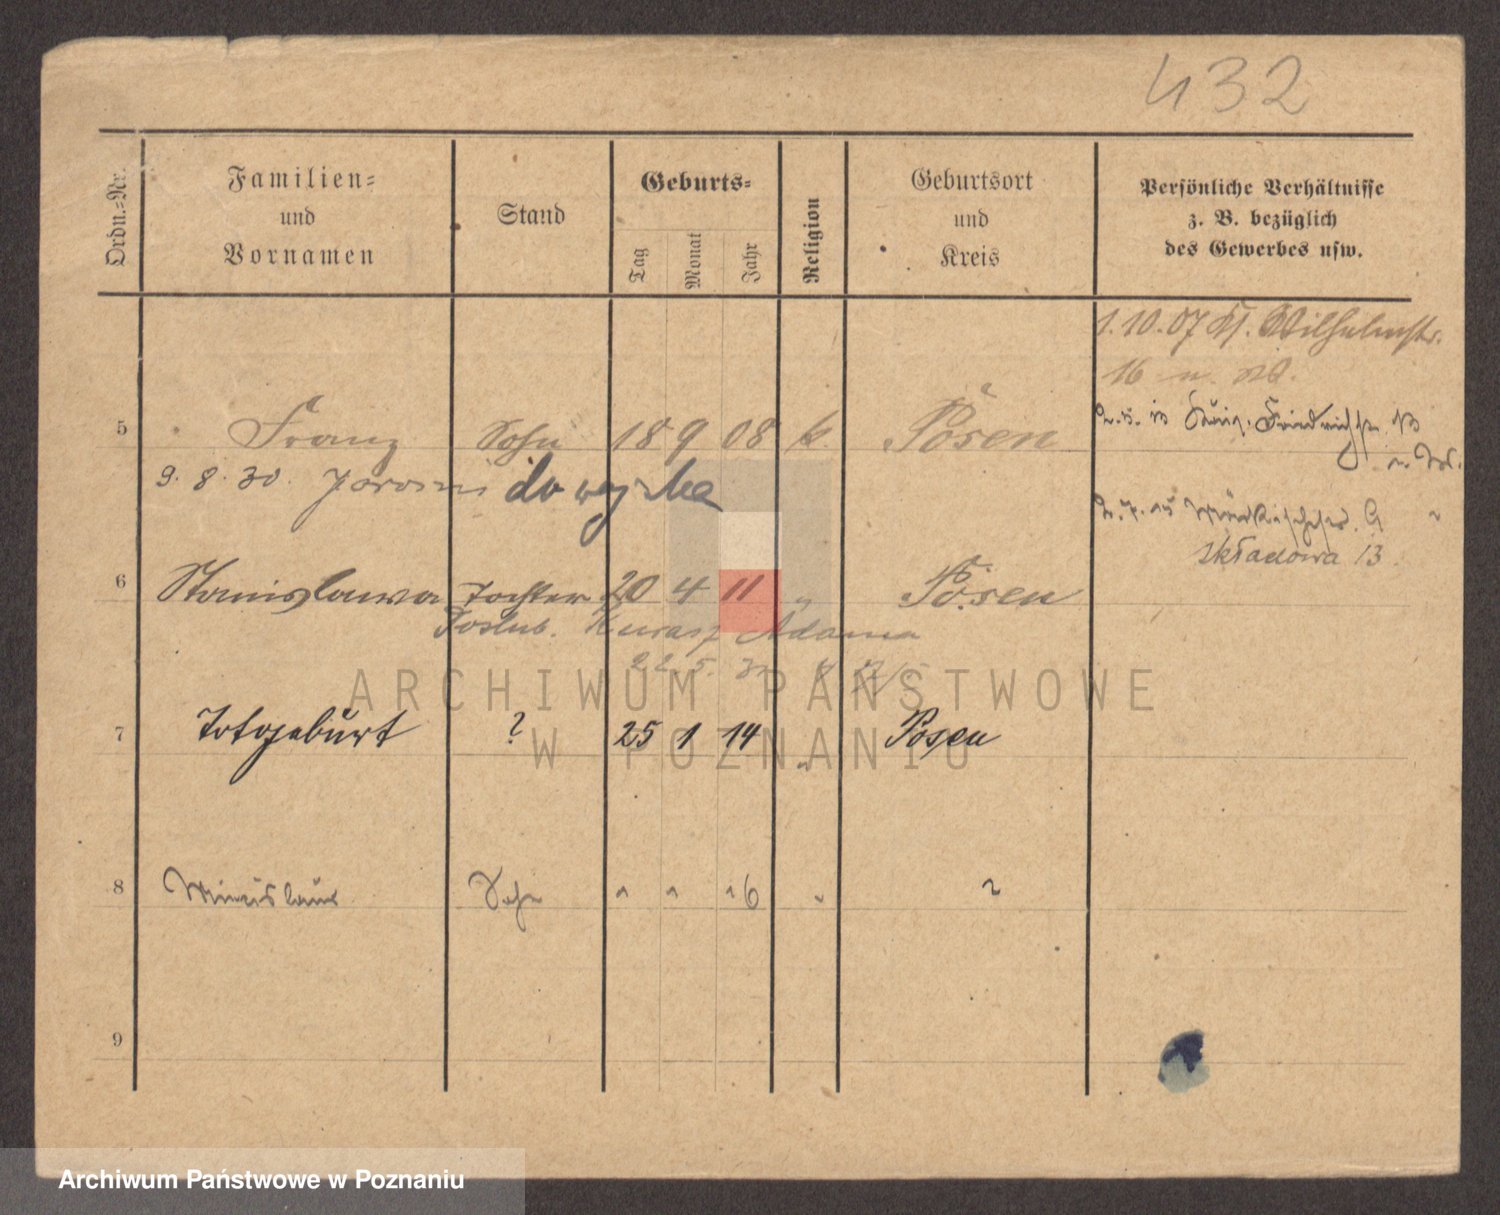 432
Ordn.=Nr.
Familien=
und
Vornamen
Stand
Geburts=
Tag
Monat
Jahr
Religion
Geburtsort
und
Kreis
Persönliche Verhältnisse
z. B. bezüglich
des Gewerbes usw.
1.10.07 Kl. Wilhelmstr.
16
5 Franz Sohn 18 9 08 k. Posen
9.8.30. do wojska
Skladowa 13
6 Stanislawa Tochter 20 4 11 " Posen
Poslub. Adama
22 5
7 Totgeburt ? 25 1 14 " Posen
8 Sohn
9
ARCHIWUM PAŃSTWOWE
W POZNANIU
Archiwum Państwowe w Poznaniu